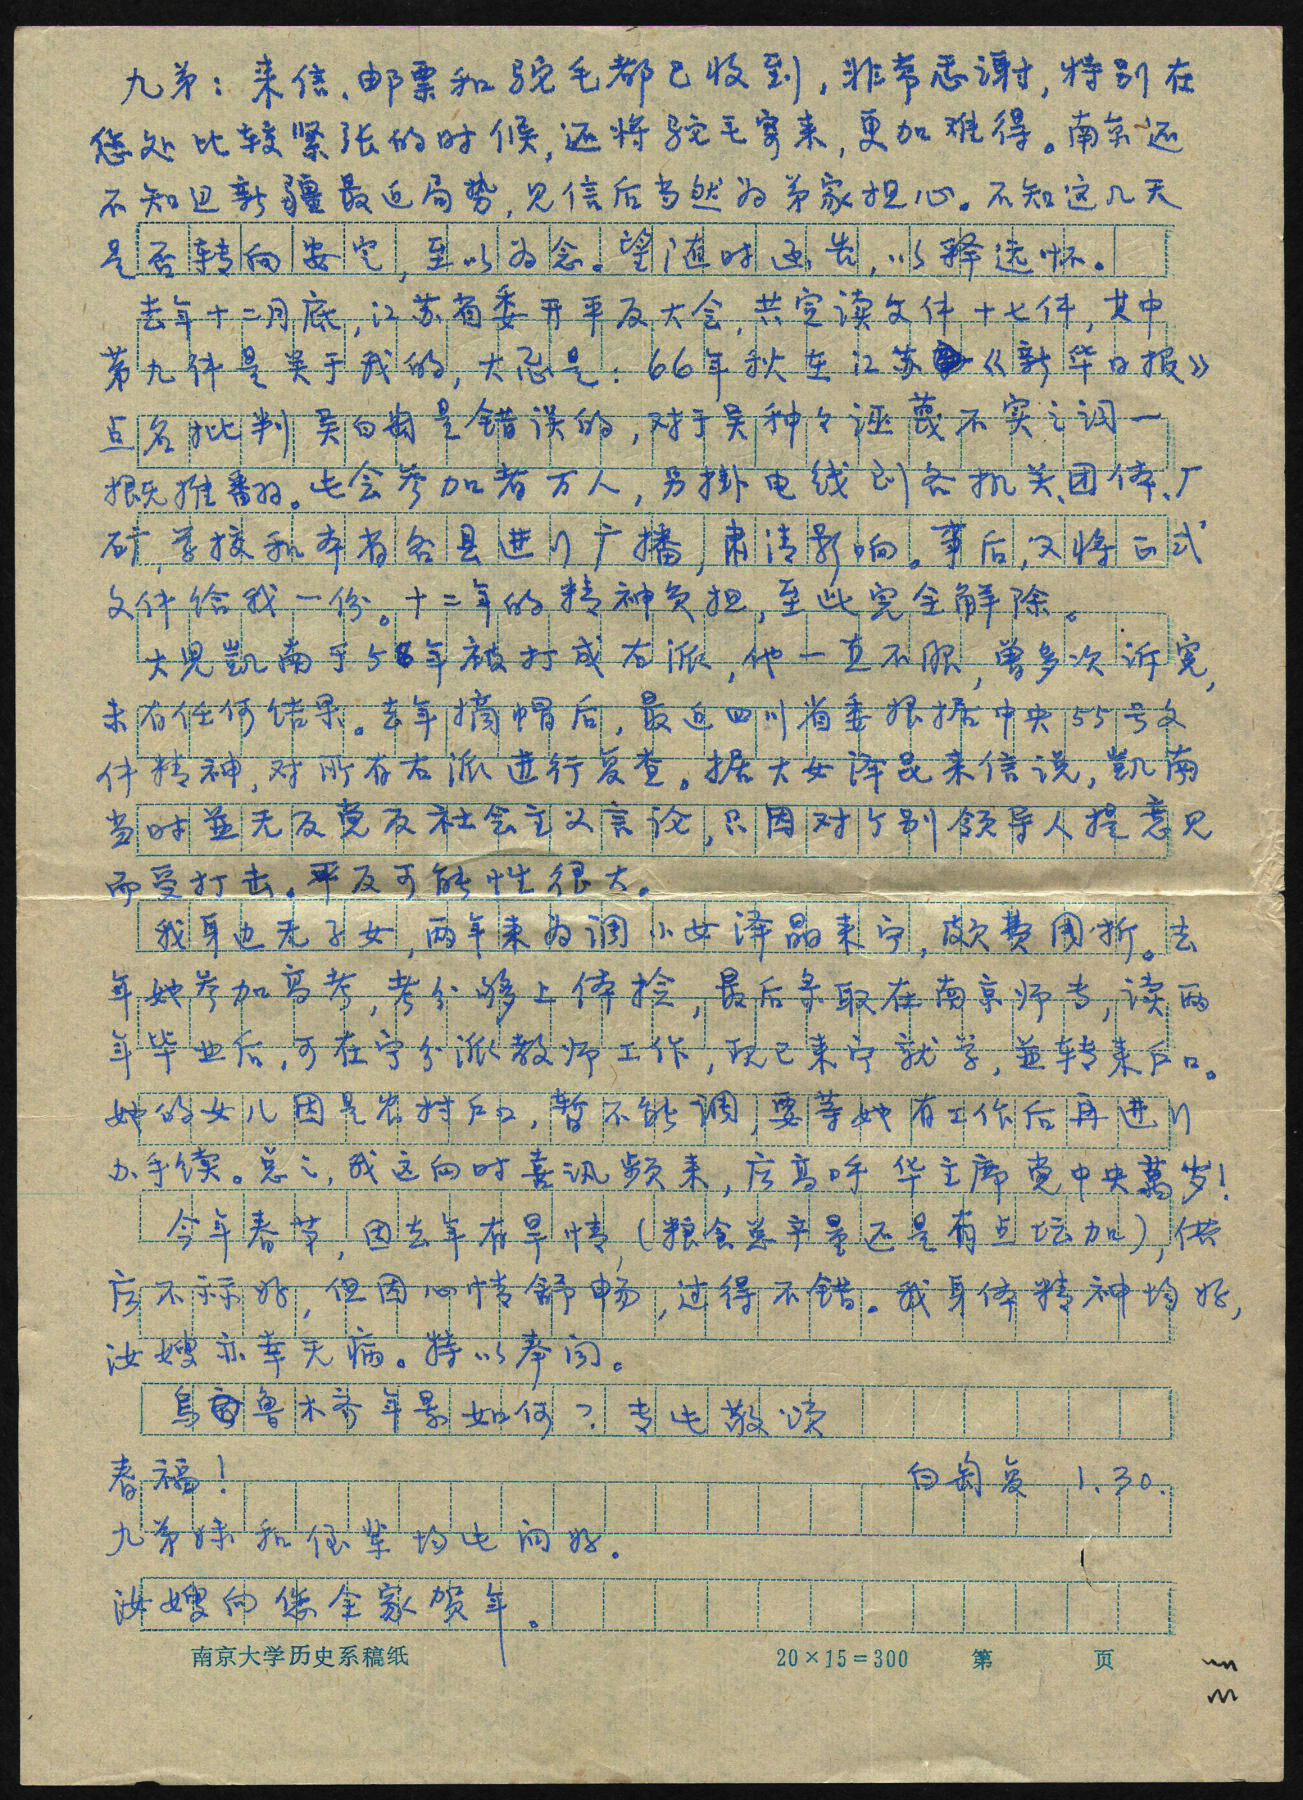 九弟：来信、邮票和驼毛都已收到，非常感谢，特别在
您处比较紧张的时候，还将驼毛寄来，更加难得。南京还
不知道新疆最近局势，见信后当然为弟家担心。不知这几天
是否转向安定，至以为念。望随时函告，以释远怀。
去年十二月底，江苏省委开平反大会，共宣读文件十七件，其中
第九件是关于我的，大意是：66年秋在江苏《新华日报》
点名批判吴白匋是错误的，对于吴种々诬蔑不实之词一
概推翻。此会参加者万人，另掛电线到各机关、团体、厂
矿，学校和本省各县进行广播，肃清影响。事后，又将正式
文件给我一份。十二年的精神负担，至此完全解除。
大儿凯南于58年被打成右派，他一直不服，曾多次诉冤，
未有任何结果。去年摘帽后，最近四川省委根据中央55号文
件精神，对所有右派进行复查。据大女泽昆来信说，凯南
当时並无反党反社会主义言论，只因对个别领导人提意见
而受打击。平反可能性很大。
我身边无子女，两年来为调小女泽晶来宁，颇费周折。去
年她参加高考，考分够上体捡，最后录取在南京师专，读两
年毕业后，可在宁分派教师工作，现已来宁就学，並转来户口。
她的女儿因是农村户口，暂不能调，要等她有工作后再进行
办手续。总之，我这向时喜讯频来，应高呼华主席党中央萬岁！
今年春节，因去年有旱情，（粮食总产量还是有点增加），供
应不示好，但因心情舒畅，过得不错。我身体精神均好，
汝嫂亦幸无病。特以奉闻。
烏鲁木齐年景如何？专此敬颂
春福！ 白匋复 1.30.
九弟妹和侄辈均此问好．
汝嫂向您全家贺年。
南京大学历史系稿纸 20×15=300 第 页